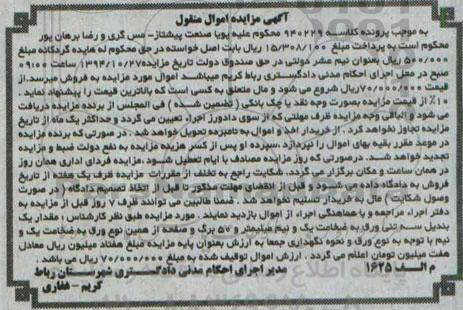 آگهی مزایده اموال منقول
به موجب پرونده کلاسه ۹۴۰۲۲۹ محکوم علیه پویا صنعت پیشتاز- مس گری و رضا برهان پور
محکوم است به پرداخت مبلغ ۱۵/۳۰۸/۱۰۰ ریال بابت اصل خواسته در حق محکوم له هایده گردگانه مبلغ
۵۰۰/۰۰۰ ریال بعنوان نیم عشر دولتی در حق صندوق دولت تاریخ مزایده ۱۳۹۴/۱۰/۲۷ ساعت ۰۹:۱۰
صبح در محل اجرای احکام مدنی دادگستری رباط کریم میباشد اموال مورد مزایده به فروش میرسد. از
قیمت ۷۰/۰۰۰/۰۰۰ ریال شروع می شود و مال متعلق به کسی است که بالاترین قیمت را پیشنهاد نماید.
۱۰٪ از قیمت مزایده بصورت وجه نقد یا چک بانکی ( تضمین شده ) فی المجلس از برنده مزایده دریافت
می شود و الباقی وجه مزایده ظرف مهلتی که از سوی دادورز اجراء تعیین می گردد و حداکثر یک ماه از تاریخ
مزایده تجاوز نخواهد کرد. از خریدار اخذ و اموال به نامبرده تحویل خواهد شد . در صورتی که برنده مزایده
در موعد مقرر بقیه بهای اموال را نپردازد ،سپرده او پس از کسر هزینه مزایده به نفع دولت ضبط و مزایده
تجدید خواهد شد. درصورتی که روز مزایده مصادف با ایام تعطیل شود .مزایده فردای اداری همان روز
در همان ساعت و مکان برگزار می گردد. شکایت راجع به تخلف از مقررات مزایده ظرف یک هفته از تاریخ
فروش به دادگاه داده می شود و قبل از انقضای مهلت مذکور یا قبل از اتخاذ تصمیم دادگاه ( در صورت
وصول شکایت ) مال به خریدار تسلیم نخواهد شد. ضمنا طالبین می توانند ظرف ۷ روز قبل از مزایده به
دفتر اجراء مراجعه و با هماهنگی اجراء از اموال بازدید نمایند . مورد مزایده طبق نظر کارشناس : مقدار یک
بندیل سه تنی ورق به ضخامت یک و نیم میلیمتر و ۵۷ برگ و صفحه از همین نوع ورق به ضخامت یک و
نیم با توجه به نوع ورق و نحوه نگهداری جمعا به ارزش بعنوان پایه مزایده مبلغ هفتاد میلیون ریال معادل
هفت میلیون تومان اعلام می گردد . ارزش اموال توقیف شده به مبلغ ۷۰/۰۰۰/۰۰۰ ریال می باشد .
م الف ۱۶۲۵ مدیر اجرای احکام مدنی دادگستری شهرستان رباط
کریم - غفاری